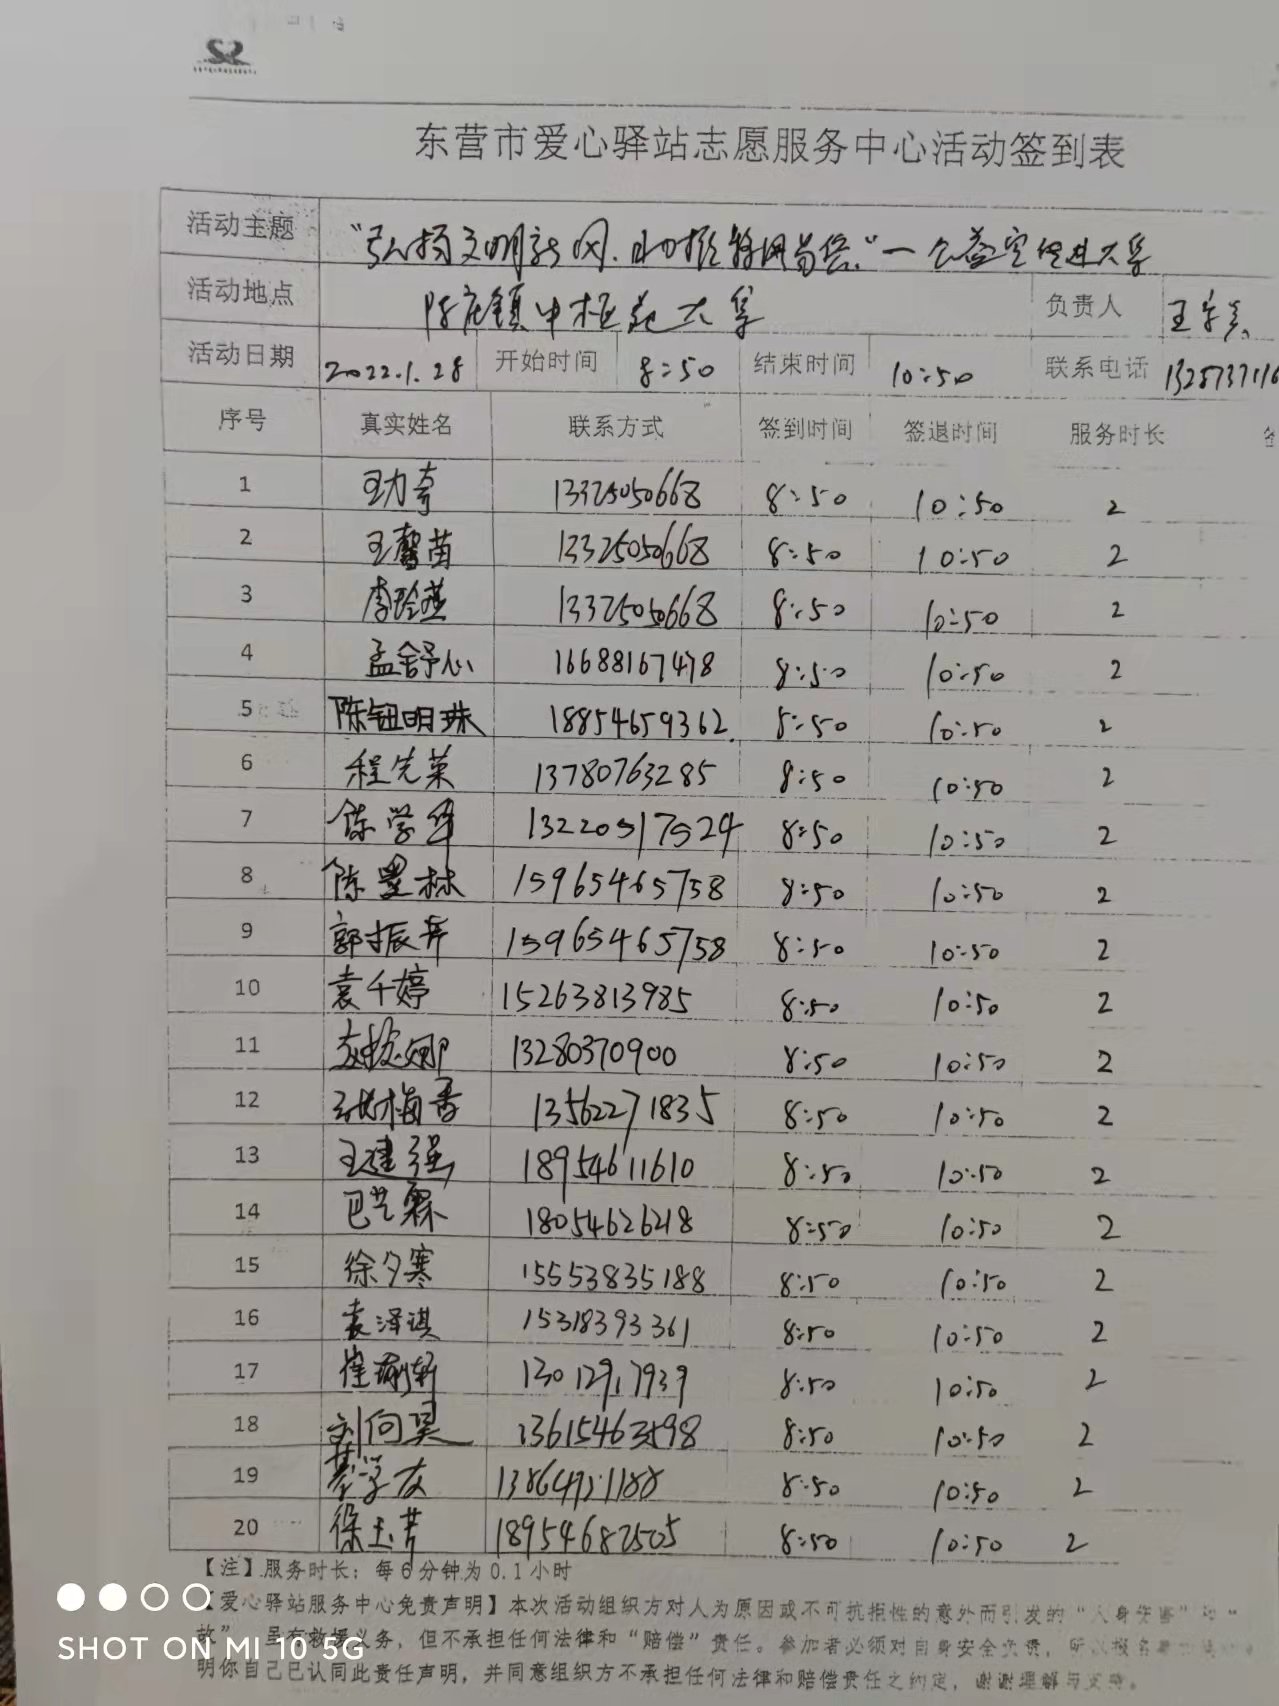 东营市爱心驿站志愿服务中心活动签到表
活动主题 "弘扬文明新风、
活动地点 陈庄镇中 大 负责人 王
活动日期 2022.1.28 开始时间 8:50 结束时间 10:50 联系电话
序号 真实姓名 联系方式 签到时间 签退时间 服务时长
1 王力奇 13325050668 8:50 10:50 2
2 王馨苗 13325050668 8:50 10:50 2
3 李玲燕 13325050668 8:50 10:50 2
4 孟舒心 16688167478 8:50 10:50 2
5 陈钰明珠 18854659362 8:50 10:50 2
6 程先荣 13780763285 8:50 10:50 2
7 陈学军 13220517524 8:50 10:50 2
8 陈墨林 15965465758 8:50 10:50 2
9 郭振 15965465758 8:50 10:50 2
10 袁千婷 15263813985 8:50 10:50 2
11 13280370900 8:50 10:50 2
12 张梅香 13562271835 8:50 10:50 2
13 王建强 18954611610 8:50 10:50 2
14 巴艺霖 18054626218 8:50 10:50 2
15 徐夕寒 15553835188 8:50 10:50 2
16 袁泽淇 15318393361 8:50 10:50 2
17 崔 轩 13012917939 8:50 10:50 2
18 刘向昊 13615463598 8:50 10:50 2
19 学友 8:50 10:50 2
20 徐玉芳 18954682505 8:50 10:50 2
【注】服务时长：每6分钟为0.1小时
【爱心驿站服务中心免责声明】本次活动组织方对人为原因或不可抗拒性的意外而引发的"人身
故" 虽有救援义务，但不承担任何法律和"赔偿"责任。参加者必须对自身安全负责，
明你自己已认同此责任声明，并同意组织方不承担任何法律和赔偿责任之约定，谢谢理解与支持。
SHOT ON MI 10 5G